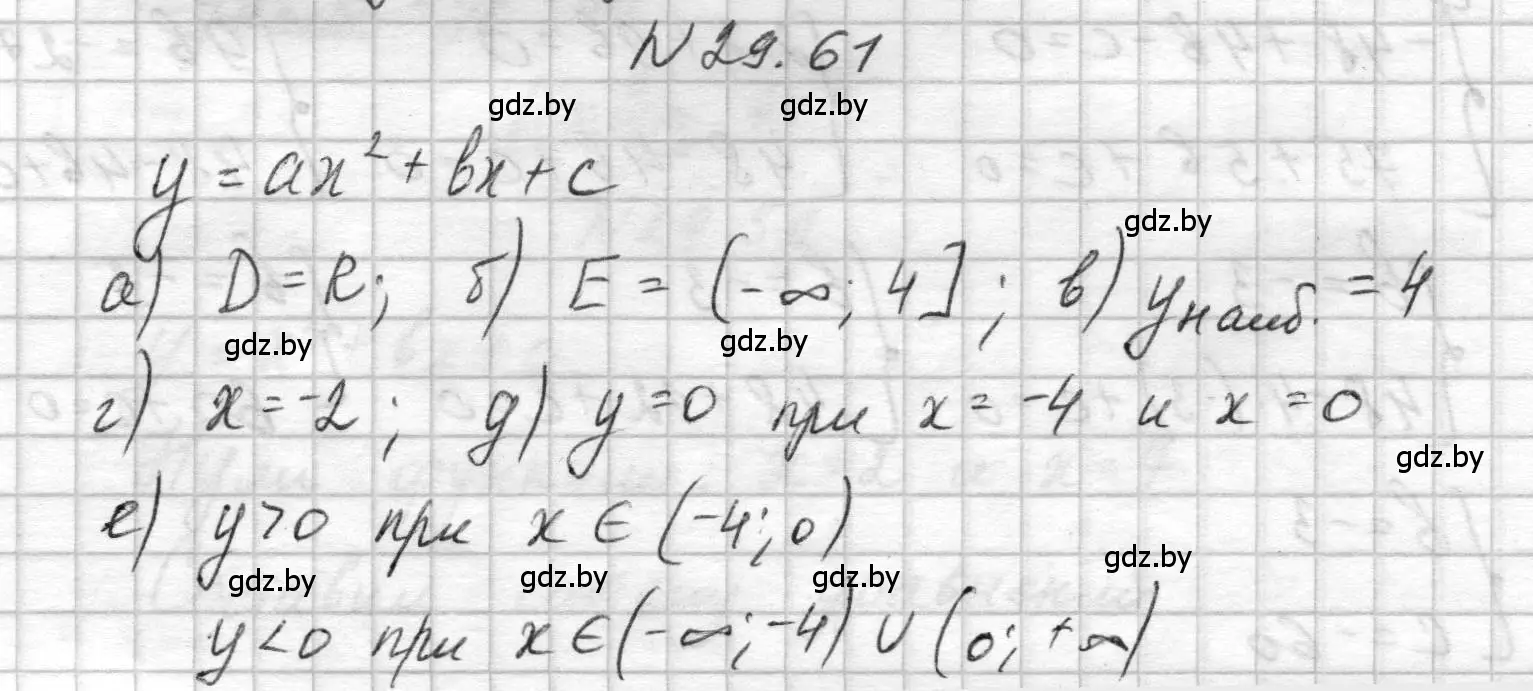 N 29.61
gdz.by gdz.by
y = ax² + bx + c
gdz.by
а) D = R; б) E = (-∞; 4]; в) y наиб. = 4
gdz.by gdz.by
г) x = -2; д) y = 0 при x = -4 и x = 0
gdz.by
е) y > 0 при x ∈ (-4; 0)
gdz.by gdz.by gdz.by gdz.by
y < 0 при x ∈ (-∞; -4) ∪ (0; +∞)